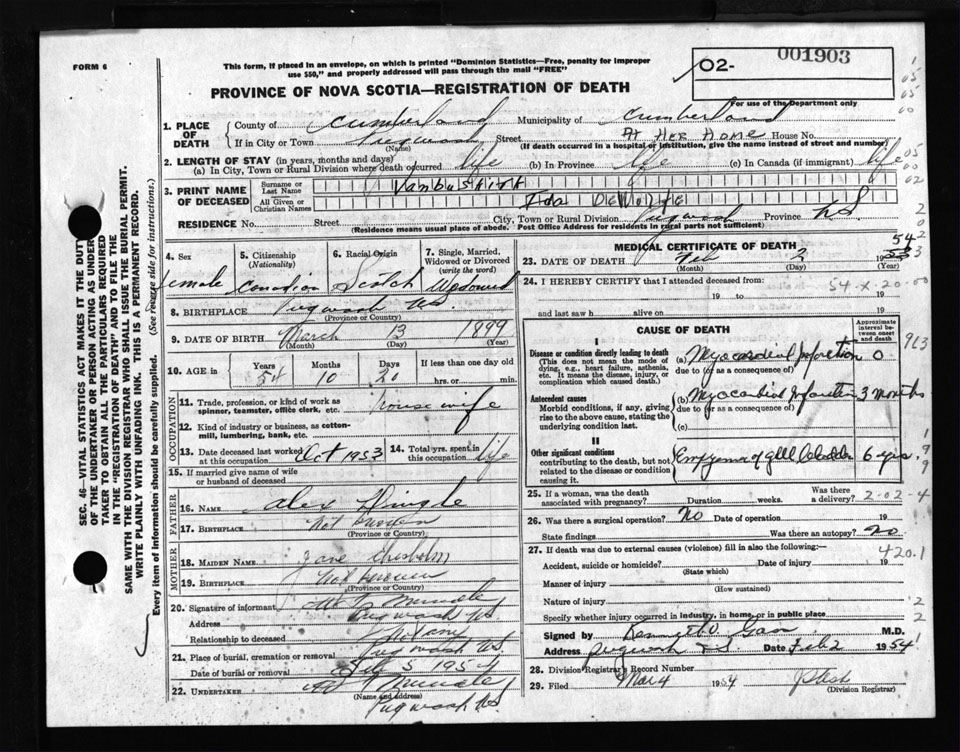 FORM 6
This form, if placed in an envelope, on which is printed "Dominion Statistics—Free, penalty for improper
use $50," and properly addressed will pass through the mail "FREE"
PROVINCE OF NOVA SCOTIA—REGISTRATION OF DEATH
02- 001903
For use of the Department only
1. PLACE OF DEATH County of Cumberland Municipality of Cumberland
If in City or Town Pugwash Street AT HER HOME House No.
(Name) (If death occurred in a hospital or institution, give the name instead of street and number)
2. LENGTH OF STAY (in years, months and days)
(a) In City, Town or Rural Division where death occurred life (b) In Province life (c) In Canada (if immigrant) life
3. PRINT NAME OF DECEASED Surname or Last Name Vanbuskirk
All Given or Christian Names Ida
RESIDENCE No. Street City, Town or Rural Division Pugwash Province N.S.
(Residence means usual place of abode. Post Office Address for residents in rural parts not sufficient)
4. Sex Female
5. Citizenship (Nationality) Canadian
6. Racial Origin Scotch
7. Single, Married, Widowed or Divorced (write the word) Widowed
8. BIRTHPLACE Pugwash N.S.
(Province or Country)
9. DATE OF BIRTH March 13 1899
(Month) (Day) (Year)
10. AGE in Years 54 Months 10 Days 20 If less than one day old
hrs. or min.
OCCUPATION
11. Trade, profession, or kind of work as spinner, teamster, office clerk, etc. housewife
12. Kind of industry or business, as cotton-mill, lumbering, bank, etc.
13. Date deceased last worked at this occupation Oct 1953
14. Total yrs. spent in this occupation life
15. If married give name of wife or husband of deceased
FATHER
16. NAME Alex
17. BIRTHPLACE Not known
(Province or Country)
MOTHER
18. MAIDEN NAME Jane Chisholm
19. BIRTHPLACE Not known
(Province or Country)
20. Signature of informant
Address Pugwash N.S.
Relationship to deceased
21. Place of burial, cremation or removal Pugwash N.S.
Date of burial or removal Feb 5 1954
22. UNDERTAKER
(Name and address)
Pugwash N.S.
MEDICAL CERTIFICATE OF DEATH
23. DATE OF DEATH Feb 2 1954
(Month) (Day) (Year)
24. I HEREBY CERTIFY that I attended deceased from:
54-X-20-00
19 to 19
and last saw h alive on 19
CAUSE OF DEATH
Approximate interval between onset and death
I
Disease or condition directly leading to death
(This does not mean the mode of dying, e.g., heart failure, asthenia, etc. It means the disease, injury, or complication which caused death.)
(a) Myocardial Infarction 0
due to (or as a consequence of)
Antecedent causes
Morbid conditions, if any, giving rise to the above cause, stating the underlying condition last.
(b) Myocardial Infarction 3 months
due to (or as a consequence of)
(c)
II
Other significant conditions
contributing to the death, but not related to the disease or condition causing it.
Empyema of gall bladder 6 yrs.
25. If a woman, was the death associated with pregnancy? Duration weeks. Was there a delivery? 2-02-4
26. Was there a surgical operation? No Date of operation 19
State findings Was there an autopsy? no
27. If death was due to external causes (violence) fill in also the following:—
420.1
Accident, suicide or homicide? Date of injury 19
(State which)
Manner of injury
(How sustained)
Nature of injury
Specify whether injury occurred in industry, in home, or in public place
Signed by M.D.
Address Pugwash N.S. Date Feb 2 1954
28. Division Registrar's Record Number
29. Filed Mar 4 1954
(Division Registrar)
SEC. 46—VITAL STATISTICS ACT MAKES IT THE DUTY
OF THE UNDERTAKER OR PERSON ACTING AS UNDERTAKER
TO OBTAIN ALL THE PARTICULARS REQUIRED
IN THE "REGISTRATION OF DEATH" AND TO FILE THE
SAME WITH THE DIVISION REGISTRAR WHO SHALL ISSUE THE BURIAL PERMIT.
WRITE PLAINLY WITH UNFADING INK. THIS IS A PERMANENT RECORD.
Every item of information should be carefully supplied. (See reverse side for instructions.)